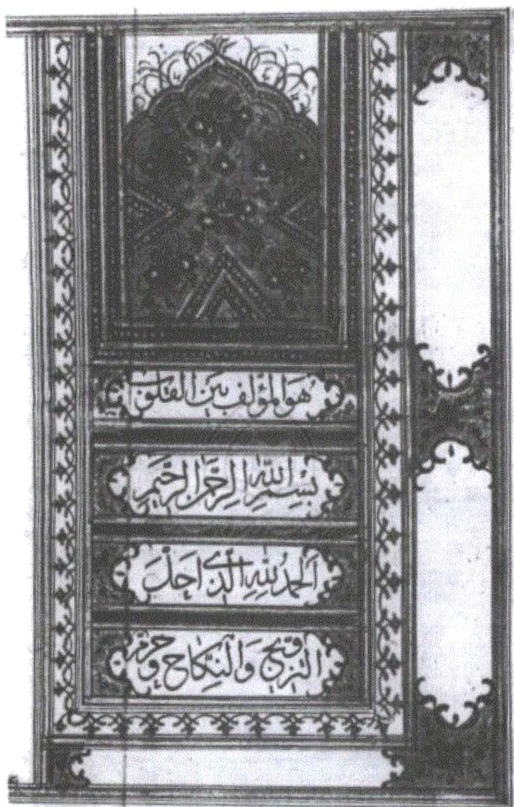 هُوَ المُؤَلِّف بَینَ القُلُوب
بِسْمِ اللهِ الرَّحْمنِ الرَّحیمِ
اَلحَمْدُ لِلّهِ الَّذی اَحَلَّ
التَزویجَ وَالنِکاحَ وَحَرَّمَ